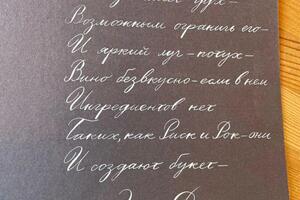 Возможным ограничь его-
И яркий луг - потух -
Вино безвкусно - если в нем
Ингредиентов нет
Таких, как Риск и Рок - они
И создают букет -